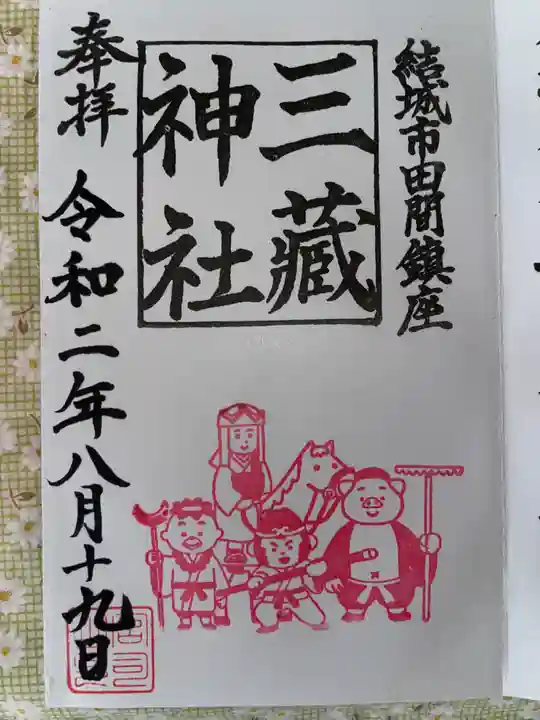 結城市田間鎮座
三藏
神社
奉拝 令和二年八月十九日